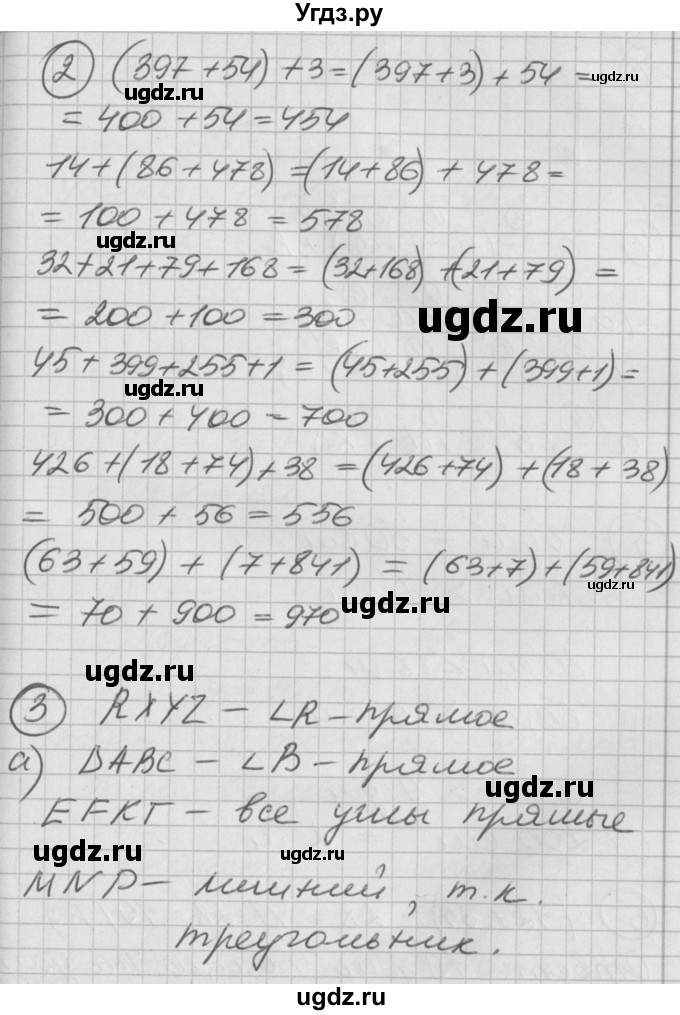 Угдз.ру
② (397+54)+3=(397+3)+54=
= 400+54=454
14+(86+478)=(14+86)+478=
= 100+478=578
32+21+79+168=(32+168)+(21+79)=
= 200+100=300
45+399+255+1=(45+255)+(399+1)=
= 300+400=700
426+(18+74)+38=(426+74)+(18+38)
= 500+56=556
(63+59)+(7+841)=(63+7)+(59+841)
= 70+900=970
③ RXYZ - ∠R - прямое
а) DABC - ∠B - прямое
EFKT - все углы прямые
MNP - лишний, т.к.
треугольник.
ugdz.ru
ugdz.ru
ugdz.ru
ugdz.ru
ugdz.ru
ugdz.ru
ugdz.ru
ugdz.ru
ugdz.ru
ugdz.ru
ugdz.ru
ugdz.ru
ugdz.ru